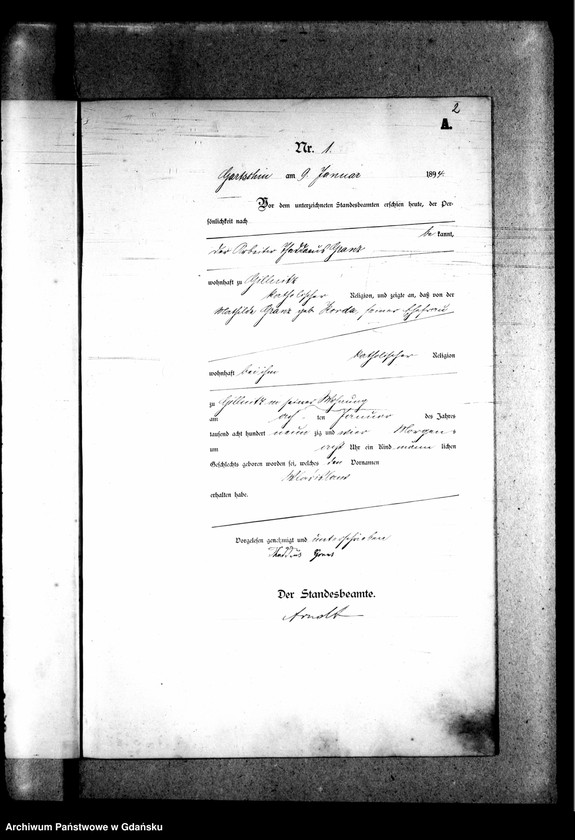 2
A.
Nr. 1.
am 9 Januar 1894.
Vor dem unterzeichneten Standesbeamten erschien heute, der Per-
sönlichkeit nach
be kannt,
der Arbeiter Thaddaeus Granz
wohnhaft zu Gillnitz
katholischer Religion, und zeigte an, daß von der
Mathilde Granz geb. Korda, seiner Ehefrau
katholischer Religion
wohnhaft bei ihm
zu Gillnitz in seiner Wohnung
am ten Januar des Jahres
tausend acht hundert neun zig und vier Morgens
um Uhr ein Kind männ lichen
Geschlechts geboren worden sei, welches den Vornamen
erhalten habe.
Vorgelesen, genehmigt und unterschrieben
Der Standesbeamte.
Arnolt
Archiwum Państwowe w Gdańsku